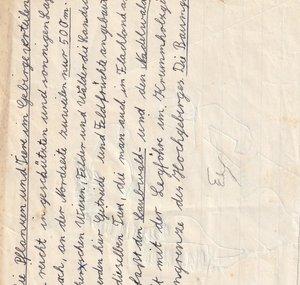 ie Pflanzen und Tiere im Gebirge verteilen
reicht in geschützten und sonnigen Lag
ach, an der Nordseite zuweilen nur 500m.
schen Wiesen Felder und Wälder die Lands
rden hier Getreide und Feldfrüchte angebau
dieselben Tiere, die man auch im Flachland a
faßt den Laubwald- und den Nadelwa
t mit der Legföhre im Krummholzgü
ngrenze des Hochgebirges. Die Baumg